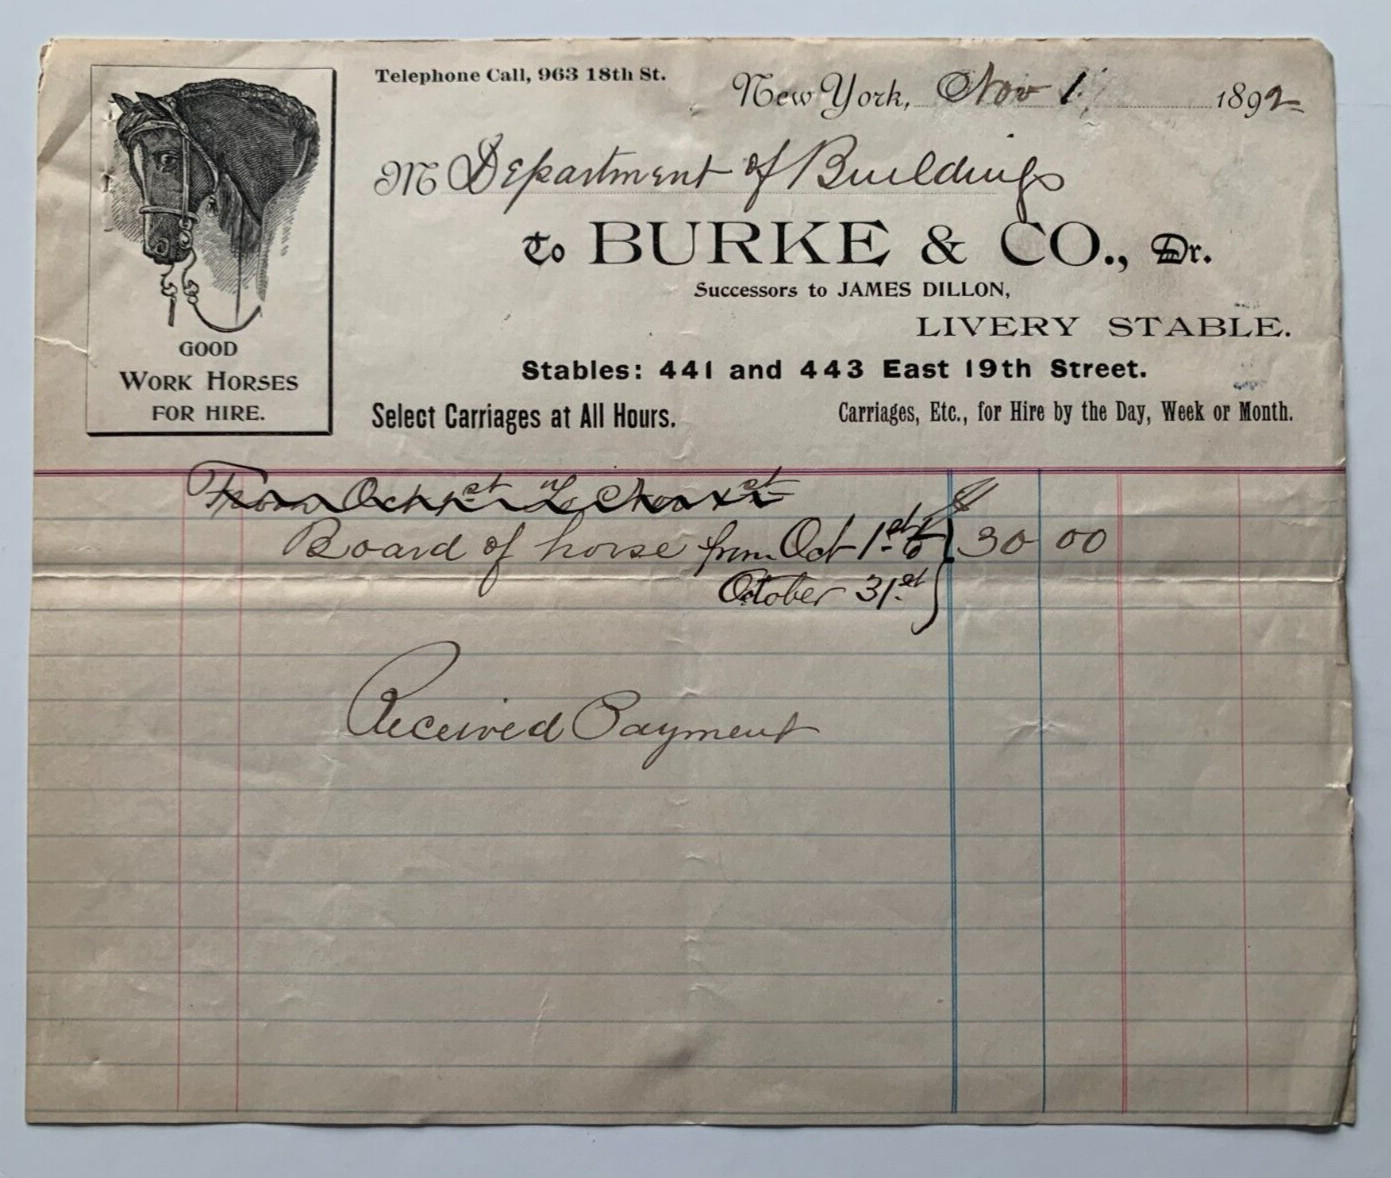 Telephone Call, 963 18th St.
New York, Nov 1 1892
M Department of Buildings
To BURKE & CO., Dr.
Successors to JAMES DILLON,
LIVERY STABLE.
Stables: 441 and 443 East 19th Street.
Select Carriages at All Hours.
Carriages, Etc., for Hire by the Day, Week or Month.
GOOD
WORK HORSES
FOR HIRE.
From Oct 1st to
Board of horse from Oct 1st to } $30 00
October 31st
Received Payment